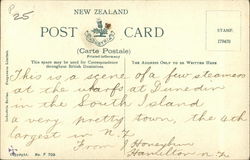 25
NEW ZEALAND
POST CARD
(Carte Postale)
STAMP.
This space may be used for Correspondence
throughout British Dominions.
THE ADDRESS ONLY TO BE WRITTEN HERE
This is a scene of a few steamers
at the warfs at Dunedin
in the South Island
a very pretty town, the 4th
largest in N.Z
From J Honeybun
Hamilton N.Z
Copyright. No. F 709